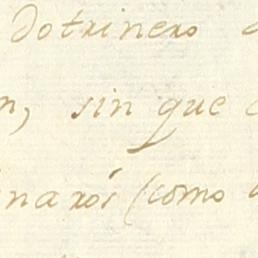 Dotrinero
n, sin que
inaxôs (como